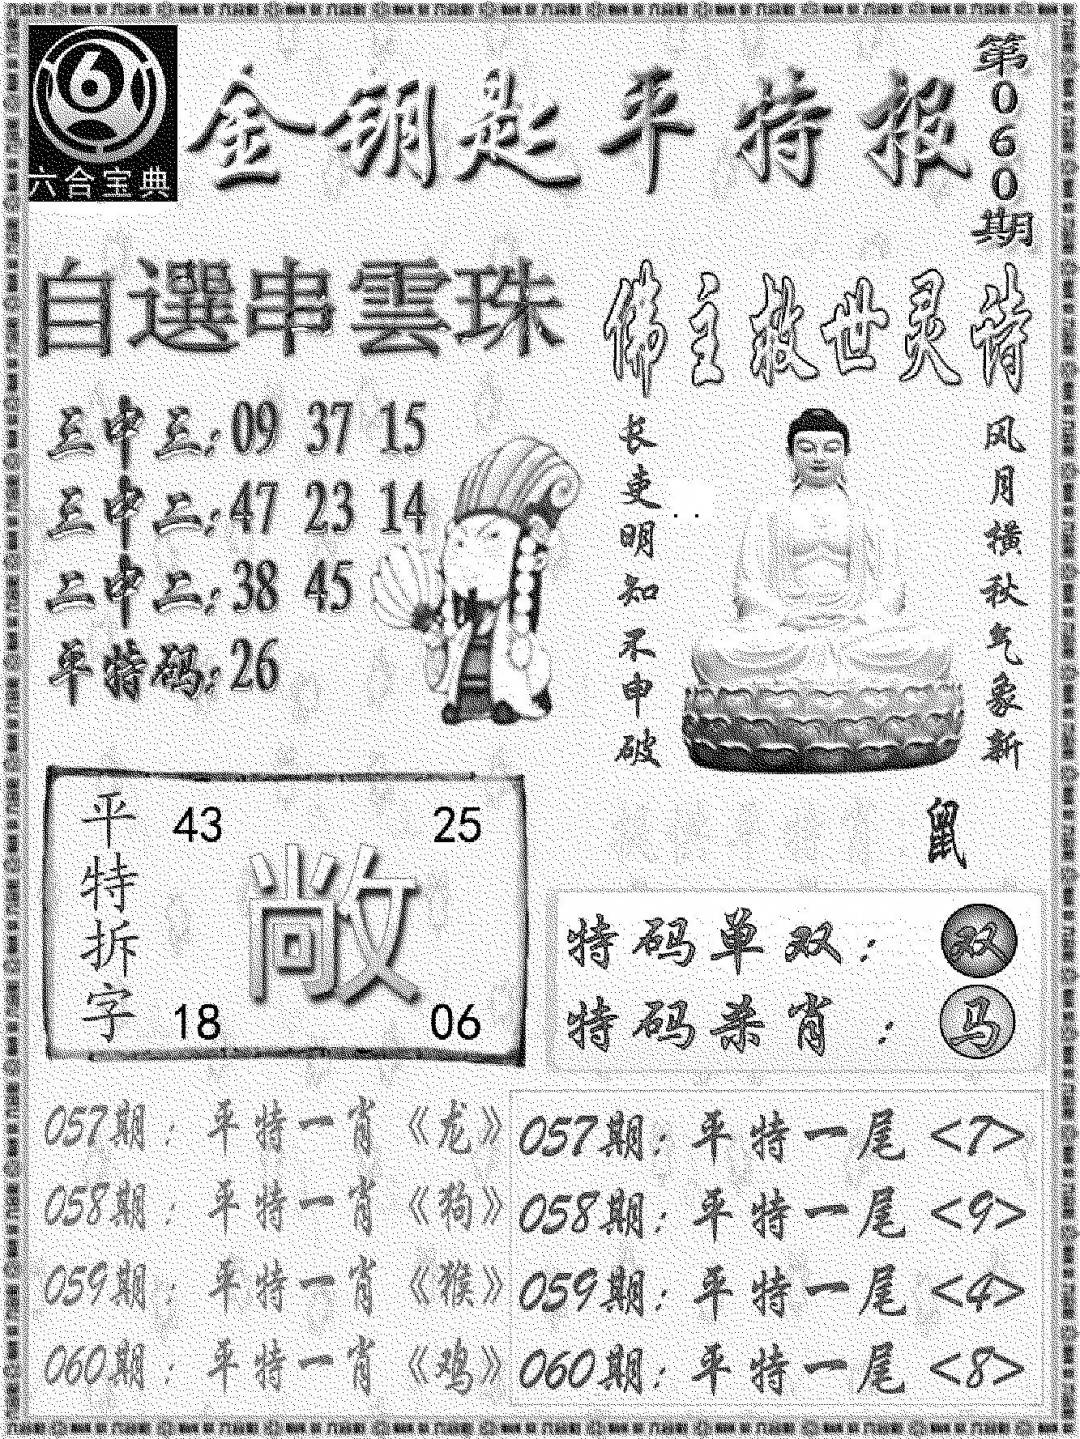 六合宝典
金钥匙平特报
第060期
自選串雲珠
三中三:09 37 15
三中二:47 23 14
二中二:38 45
平特码:26
佛主救世灵诗
风月横秋气象新
长吏明知不申破
鼠
平特拆字
43 25
敞
18 06
特码单双：双
特码杀肖：马
057期：平特一肖《龙》
058期：平特一肖《狗》
059期：平特一肖《猴》
060期：平特一肖《鸡》
057期：平特一尾<7>
058期：平特一尾<9>
059期：平特一尾<4>
060期：平特一尾<8>